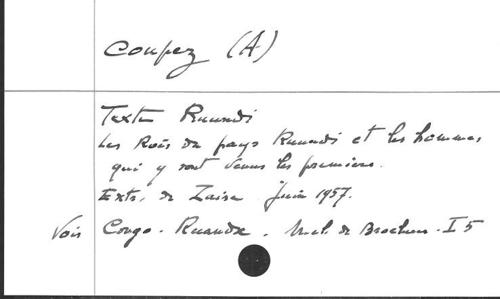 Coupez (A)
Texte Ruundi
Les Rois du pays Ruundi et les hommes
qui y sont venus les premiers.
Extr. de Zaïre Juin 1957.
Voir Congo. Ruanda. de Brochures. I 5